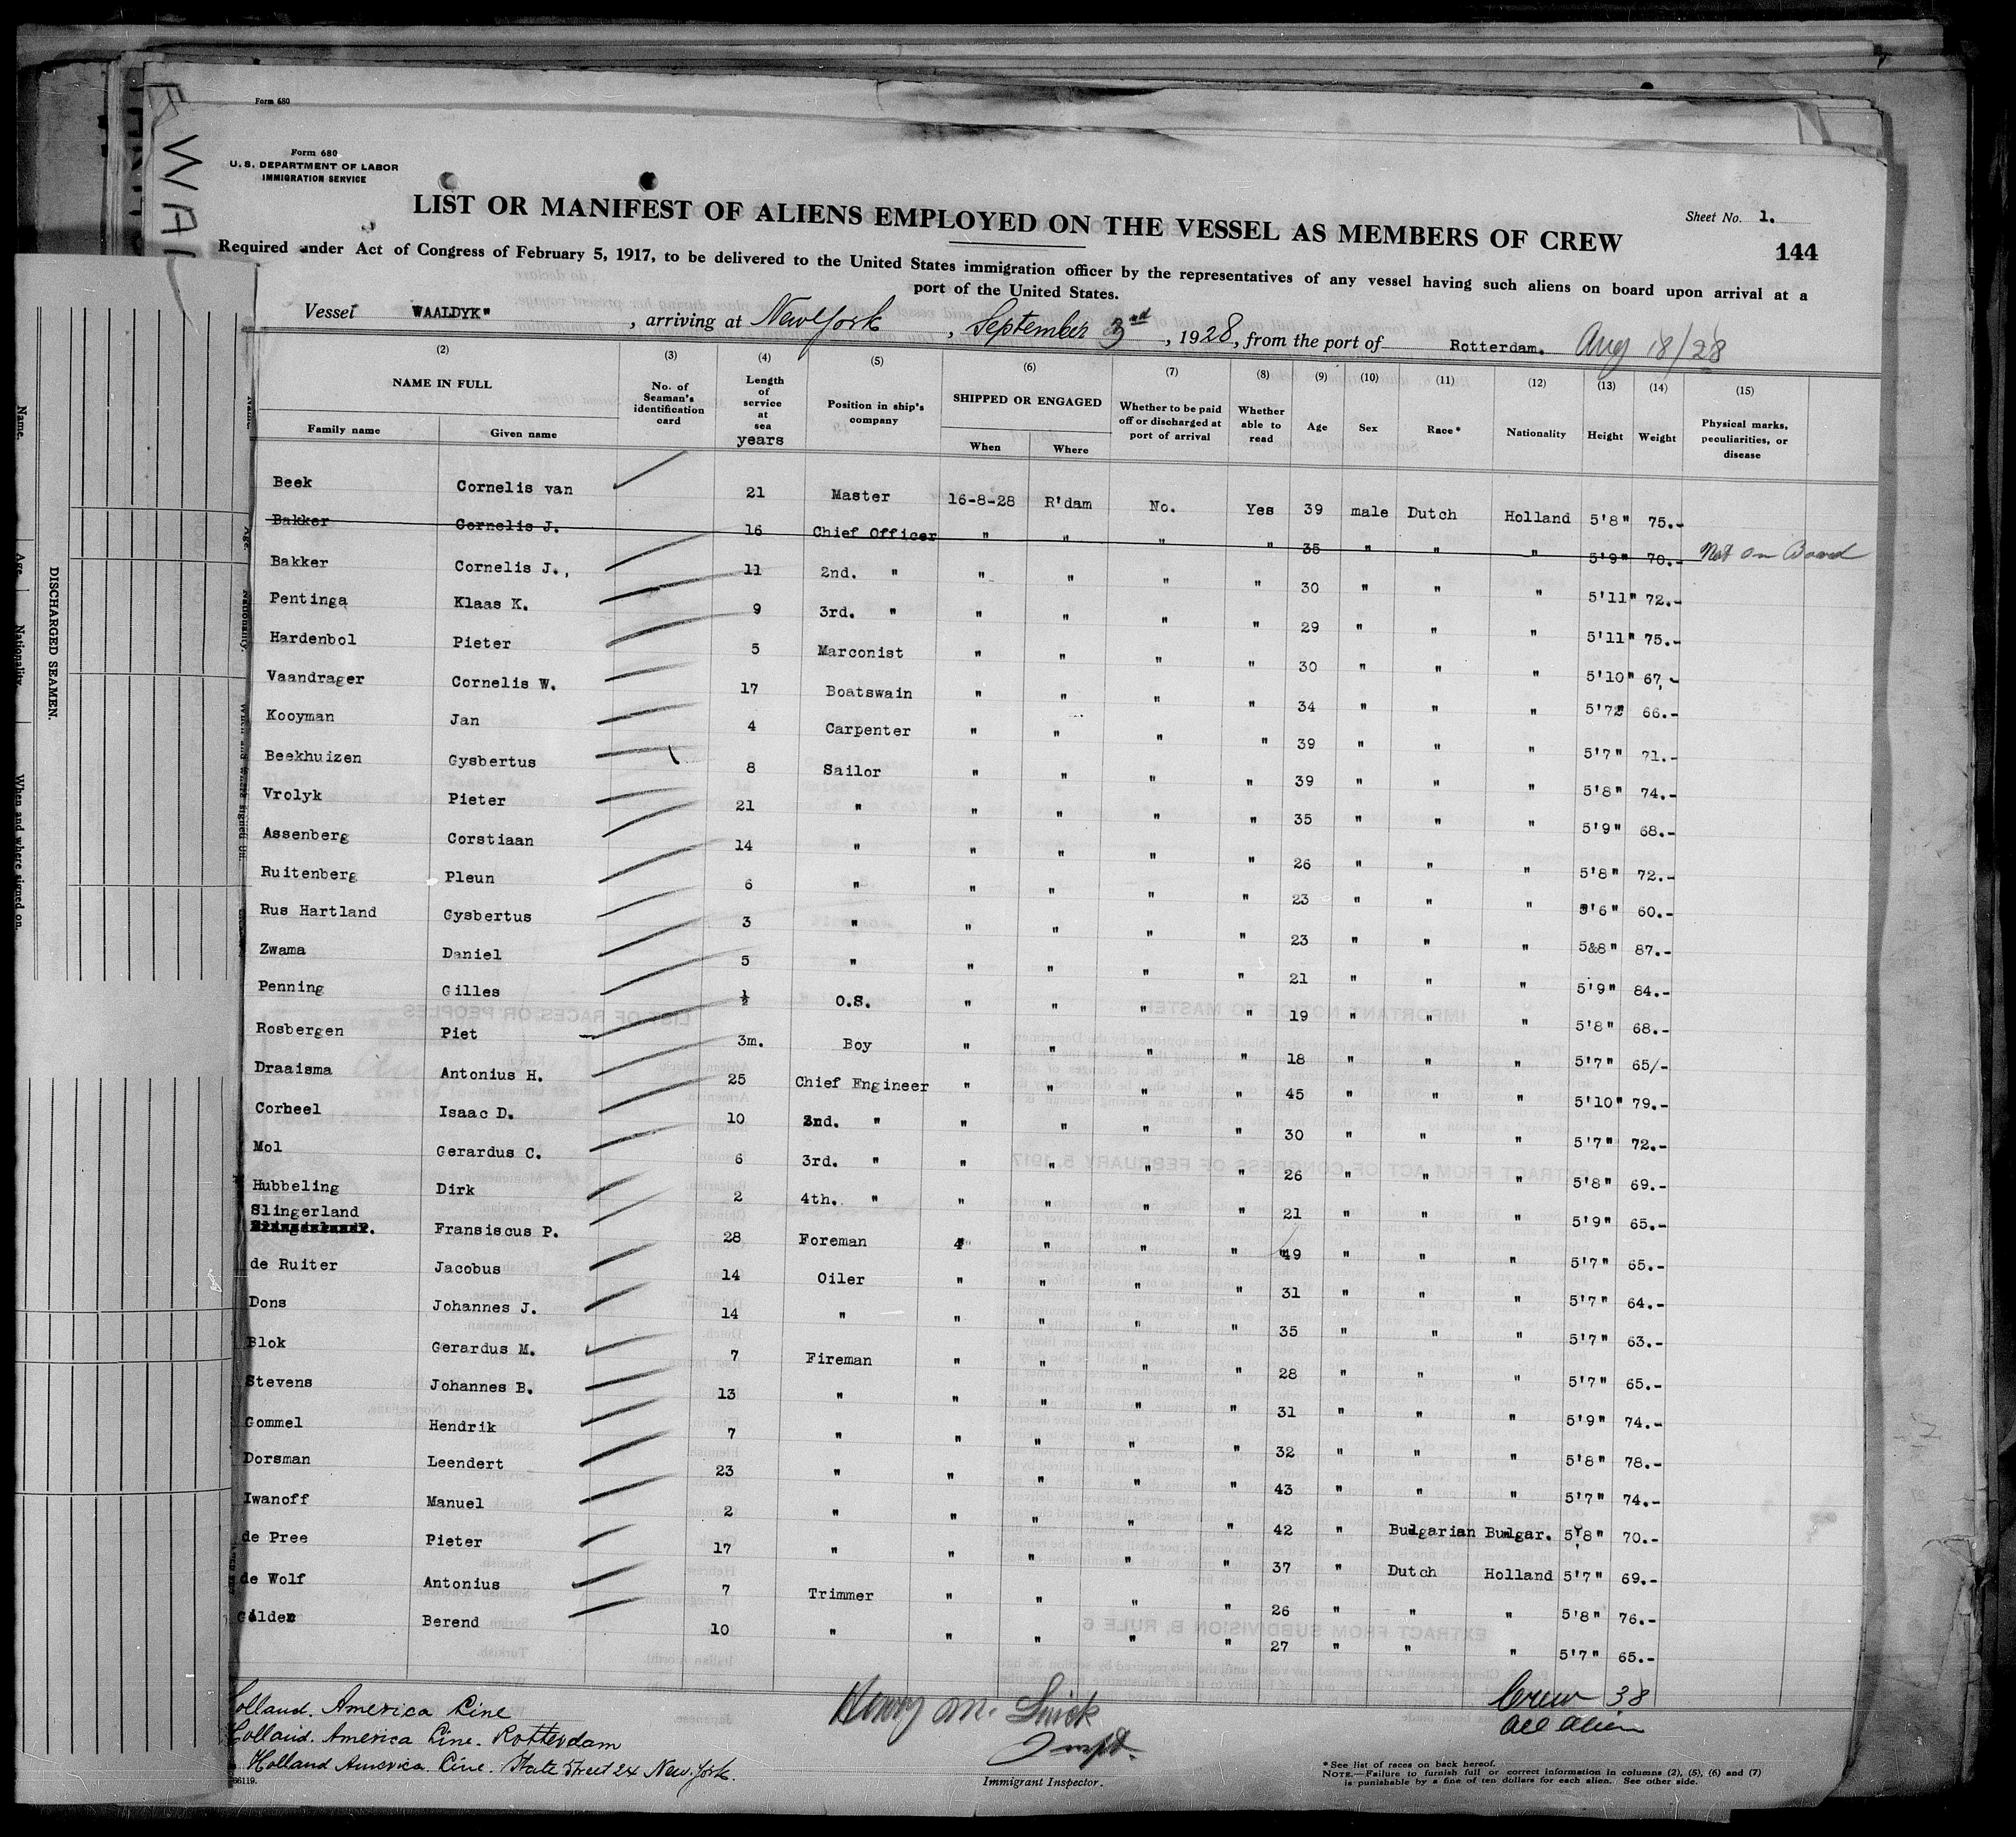 Form 680
Form 680
U. S. DEPARTMENT OF LABOR
IMMIGRATION SERVICE
Sheet No. 1.
LIST OR MANIFEST OF ALIENS EMPLOYED ON THE VESSEL AS MEMBERS OF CREW
144
Required under Act of Congress of February 5, 1917, to be delivered to the United States immigration officer by the representatives of any vessel having such aliens on board upon arrival at a
port of the United States.
Vessel WAALDYK" , arriving at New York , September 3rd , 1928, from the port of Rotterdam. Aug 18/28
(2) (3) (4) (5) (6) (7) (8) (9) (10) (11) (12) (13) (14) (15)
NAME IN FULL Family name Given name No. of Seaman's identification card Length of service at sea years Position in ship's company SHIPPED OR ENGAGED When Where Whether to be paid off or discharged at port of arrival Whether able to read Age Sex Race* Nationality Height Weight Physical marks, peculiarities, or disease
Beek Cornelis van 21 Master 16-8-28 R'dam No. Yes 39 male Dutch Holland 5'8" 75.-
Bakker Cornelis J. 16 Chief Officer " " " " 35 " " " 5'9" 70.- Not on Board
Bakker Cornelis J., 11 2nd. " " " " " 30 " " " 5'11" 72.-
Pentinga Klaas K. 9 3rd. " " " " " 29 " " " 5'11" 75.-
Hardenbol Pieter 5 Marconist " " " " 30 " " " 5'10" 67,-
Vaandrager Cornelis W. 17 Boatswain " " " " 34 " " " 5'7" 66.-
Kooyman Jan 4 Carpenter " " " " 39 " " " 5'7" 71.-
Beekhuizen Gysbertus 8 Sailor " " " " 39 " " " 5'8" 74.-
Vrolyk Pieter 21 " " " " " 35 " " " 5'9" 68.-
Assenberg Corstiaan 14 " " " " " 26 " " " 5'8" 72.-
Ruitenberg Pleun 6 " " " " " 23 " " " 5'6" 60.-
Rus Hartland Gysbertus 3 " " " " " 23 " " " 5&8" 87.-
Zwama Daniel 5 " " " " " 21 " " " 5'9" 84.-
Penning Gilles ½ O.S. " " " " 19 " " " 5'8" 68.-
Rosbergen Piet 3m. Boy " " " " 18 " " " 5'7" 65/-
Draaisma Antonius H. 25 Chief Engineer " " " " 45 " " " 5'10" 79.-
Corbeel Isaac D. 10 2nd. " " " " " 30 " " " 5'7" 72.-
Mol Gerardus C. 6 3rd. " " " " " 26 " " " 5'8" 69.-
Hubbeling Dirk 2 4th. " " " " " 21 " " " 5'9" 65.-
Slingerland Fransiscus P. 28 Foreman " " " " 49 " " " 5'7" 65.-
de Ruiter Jacobus 14 Oiler " " " " 31 " " " 5'7" 64.-
Dons Johannes J. 14 " " " " " 35 " " " 5'7" 63.-
Blok Gerardus M. 7 Fireman " " " " 28 " " " 5'7" 65.-
Stevens Johannes B. 13 " " " " " 31 " " " 5'9" 74.-
Gommel Hendrik 7 " " " " " 32 " " " 5'8" 78.-
Dorsman Leendert 23 " " " " " 43 " " " 5'7" 74.-
Iwanoff Manuel 2 " " " " " 42 " Bulgarian Bulgar. 5'8" 70.-
de Pree Pieter 17 " " " " " 37 " Dutch Holland 5'7" 69.-
de Wolf Antonius 7 Trimmer " " " " 26 " " " 5'8" 76.-
Gilder Berend 10 " " " " " 27 " " " 5'7" 65.-
Holland. America Line
Holland. America Line. Rotterdam
Holland America Line. State Street 24 New. York.
Henry M.
Immigrant Inspector.
Crew 38
All Alien
*See list of races on back hereof.
NOTE.—Failure to furnish full or correct information in columns (2), (5), (6) and (7)
is punishable by a fine of ten dollars for each alien. See other side.
DISCHARGED SEAMEN.
Name.
Age.
Nationality.
When and where signed on.